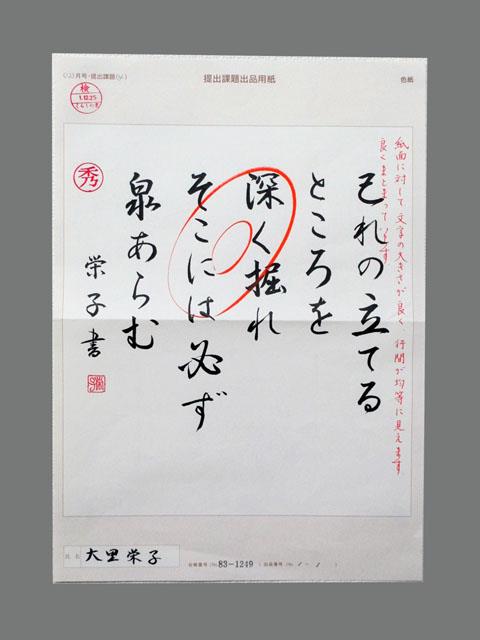 提出課題出品用紙
色紙
検
1.12.25
秀
紙面に対して文字の大きさが良く、行間が均等に見えます。
良くまとまっています。
己れの立てる
ところを
深く掘れ
そこには必ず
泉あらむ
栄子書
氏名 大里栄子
83-1249